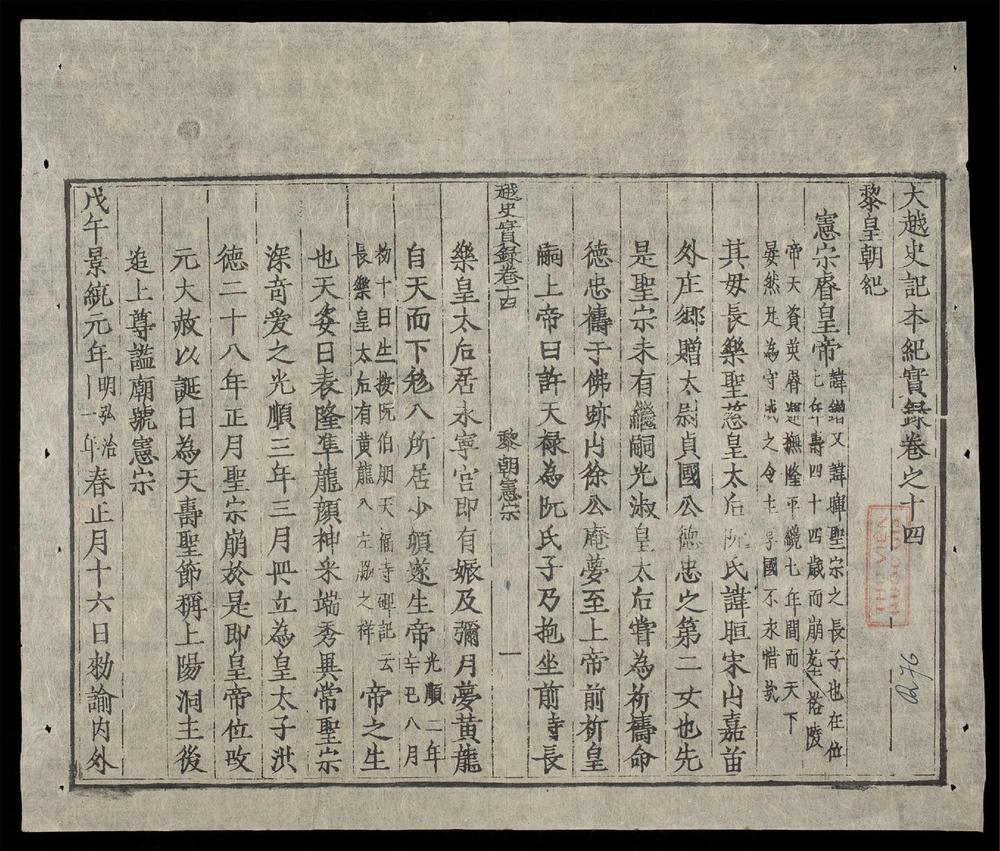 大越史記本紀實錄卷之十四
黎皇朝紀
憲宗睿皇帝
諱鏳又諱暉聖宗之長子也在位
七年壽四十四歲而崩葬裕陵
帝天資英睿運撫隆平纔七年間而天下
晏然是為守成之令主享國不永惜哉
其母長樂聖慈皇太后阮氏諱晅宋山嘉苗
外庄鄉贈太尉貞國公德忠之第二女也先
是聖宗未有繼嗣光淑皇太后嘗為祈禱命
德忠禱于佛跡山徐公庵夢至上帝前祈皇
嗣上帝曰許天禄為阮氏子乃抱坐前時長
越史實録卷十四
黎朝憲宗
一
樂皇太后居永寧宮即有娠及彌月夢黄龍
自天而下於八所居少頃遂生帝
光順二年
辛巳八月
初十日生按阮伯朋天福寺碑記云
長樂皇太后有黄龍入左脇之祥
帝之生
也天姿日表隆準龍顔神采端秀異常聖宗
深竒愛之光順三年三月冊立為皇太子洪
德二十八年正月聖宗崩於是即皇帝位改
元大赦以誕日為天壽聖節稱上陽洞主後
追上尊謚廟號憲宗
戊午景統元年
明弘治
十一年
春正月十六日勑諭内外
THƯ VIỆN
Q.76